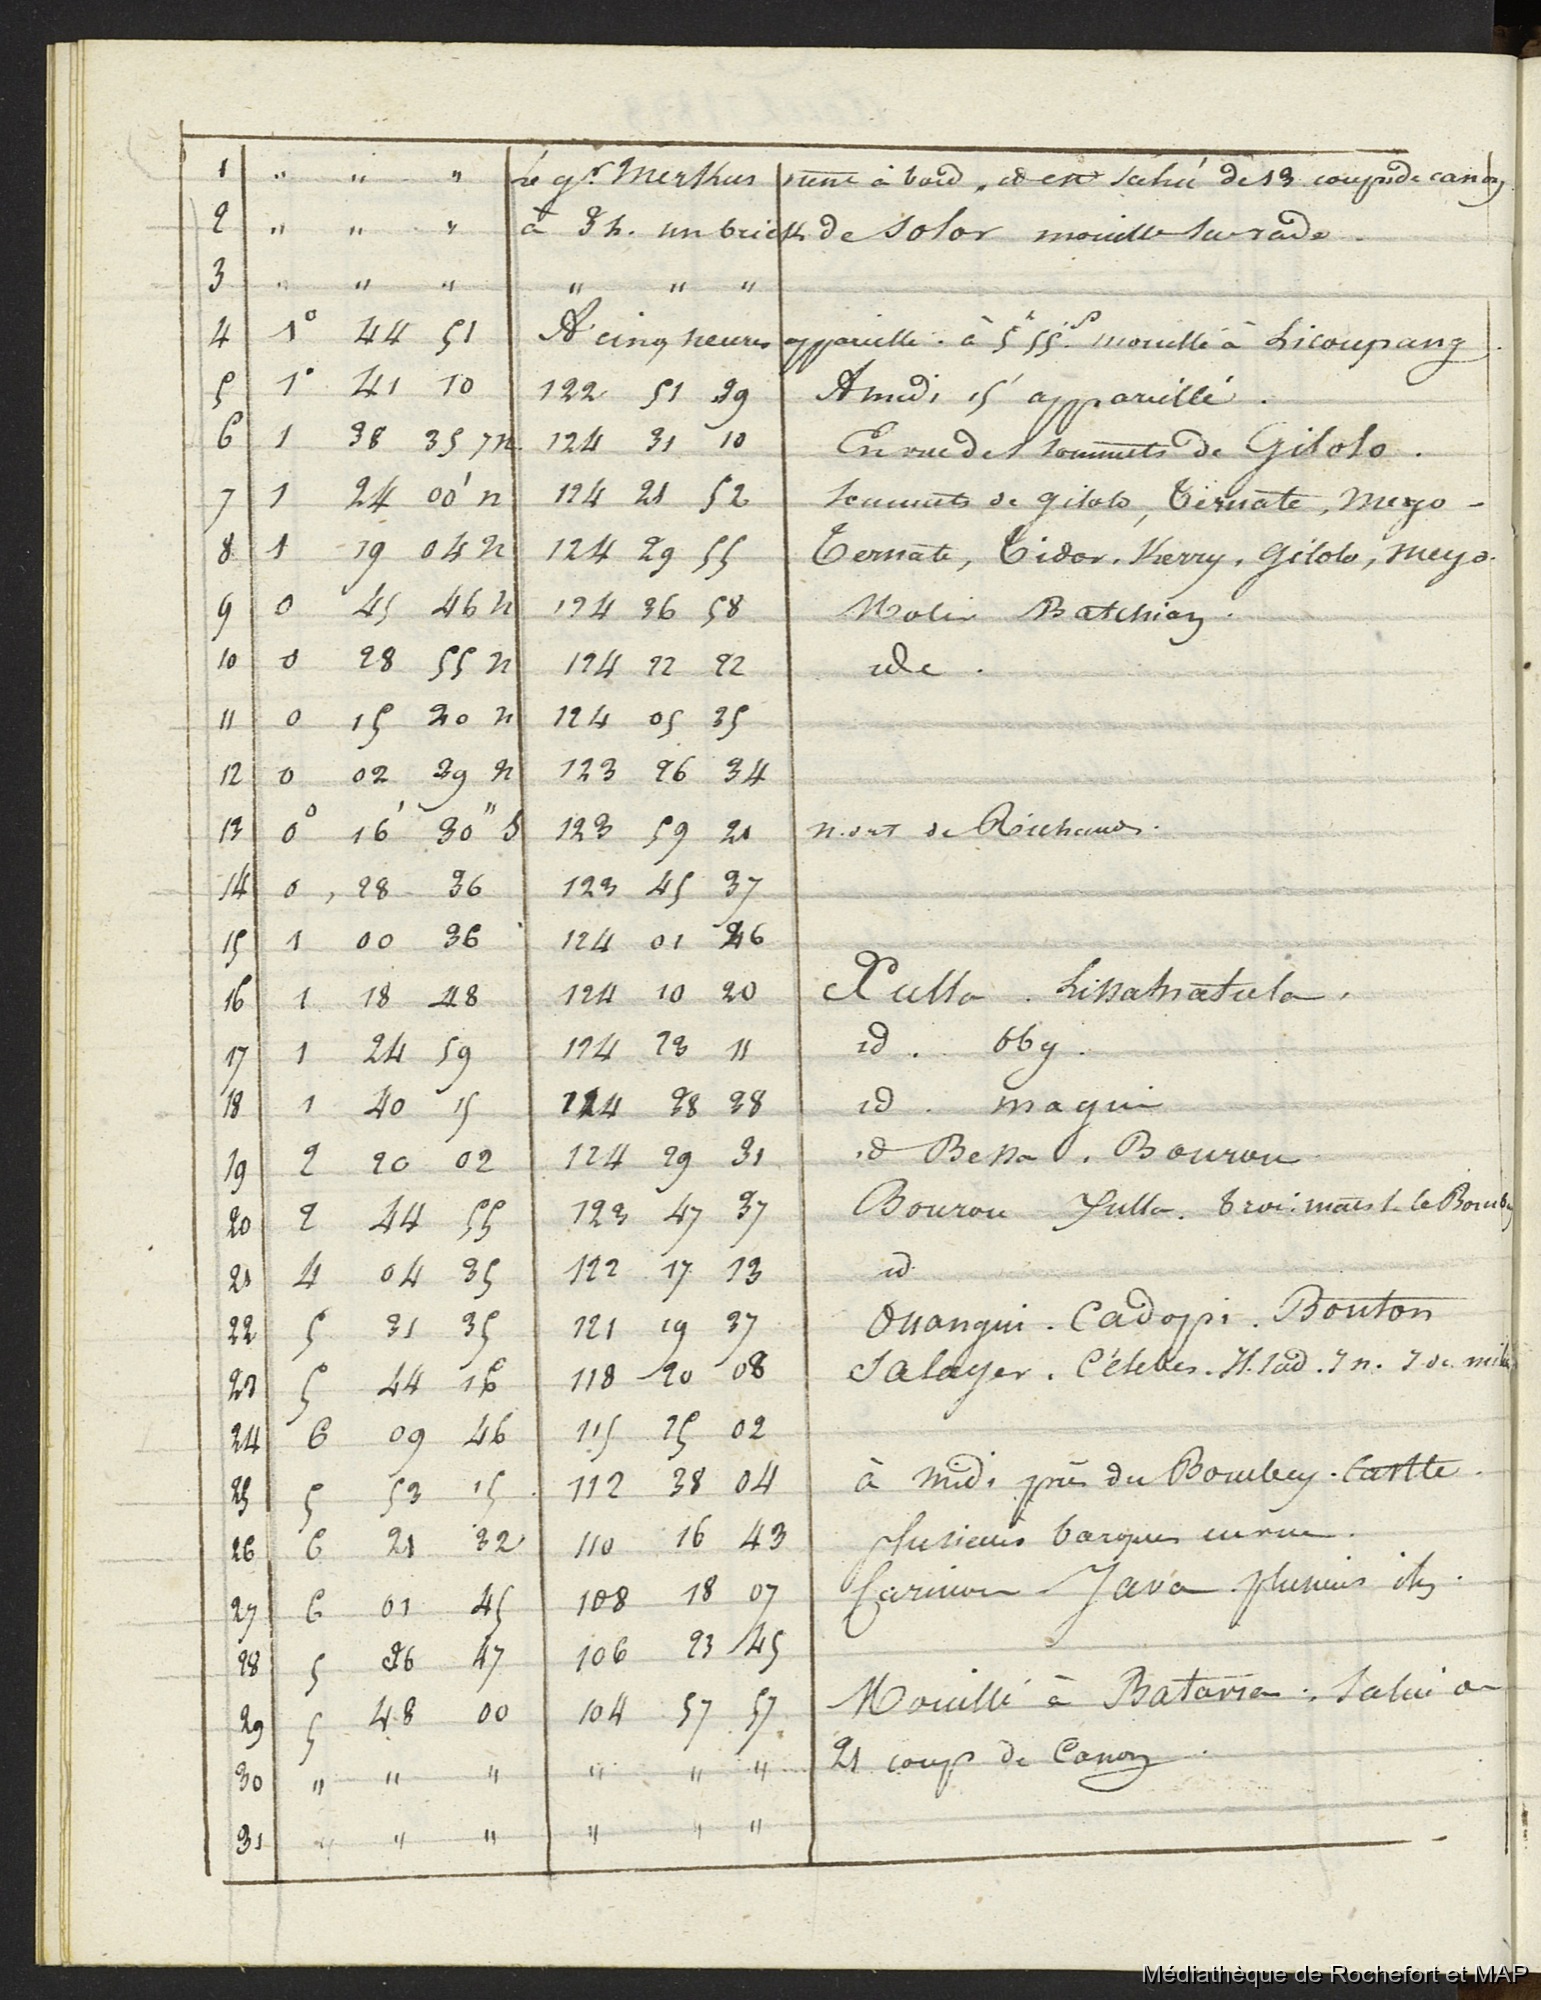 1 " " " Le gr Merkus vient à bord, est salué de 13 coups de canon
2 " " " à 3 h. un brick de Solor mouille sur rade.
3 " " " " " "
4 1° 44 51 A cinq heures appareillé. à 5h 55 mouillé à Licoupang.
5 1° 41 10 122 51 29 A midi 15' appareillé.
6 1 38 35 7 n. 124 31 10 En vue des sommets de Gilolo.
7 1 24 00' n 124 21 52 Sommets de gilolo, Ternate, Meyo -
8 1 19 04 n 124 29 55 Ternate, Tidor. Kerry, Gilolo, Meyo.
9 0 45 46 n 124 36 58 Motir Batchian.
10 0 28 55 n 124 22 22 ide.
11 0 15 20 n 124 05 35
12 0 02 39 n 123 26 34
13 0° 16' 30" S 123 59 21 n. ort de
14 0, 28 36 123 45 37
15 1 00 36 124 01 26
16 1 18 48 124 10 20 Xulla. Lissamatula.
17 1 24 59 124 23 11 id. Oby.
18 1 40 15 124 28 38 id. magin
19 2 20 02 124 29 31 id Bessa. Bourou
20 2 44 55 123 47 37 Bourou Sulla. trois mâts le Bombay
21 4 04 35 122 17 13 id
22 5 31 35 121 19 37 Ouangui. Cadopi. Bouton
23 5 44 16 118 20 08 Salayer. Célèbes.
24 6 09 46 115 25 02
25 5 53 15 112 38 04 à midi près du Bombay. Castle.
26 6 21 32 110 16 43 plusieurs barques en vue.
27 6 01 45 108 18 07 Carimon Java plusieurs iles.
28 5 26 47 106 23 45
29 5 48 00 104 57 57 Mouillé à Batavia. Salué de
30 " " " " " " 21 coups de Canon.
31 " " " " " "
Médiathèque de Rochefort et MAP